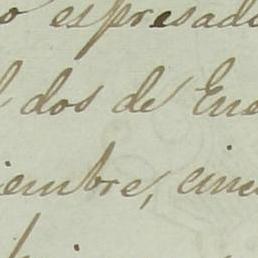 o espresado
dos de Ene
iembre, cinc